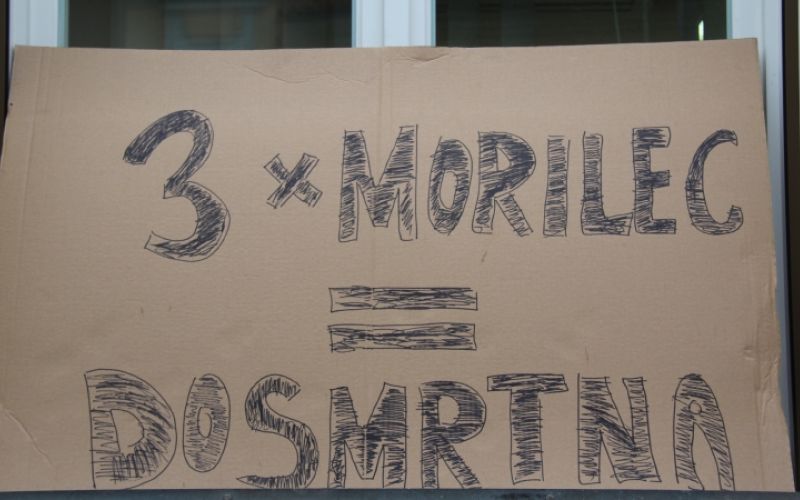 3 × MORILEC
=
DOSMRTNA